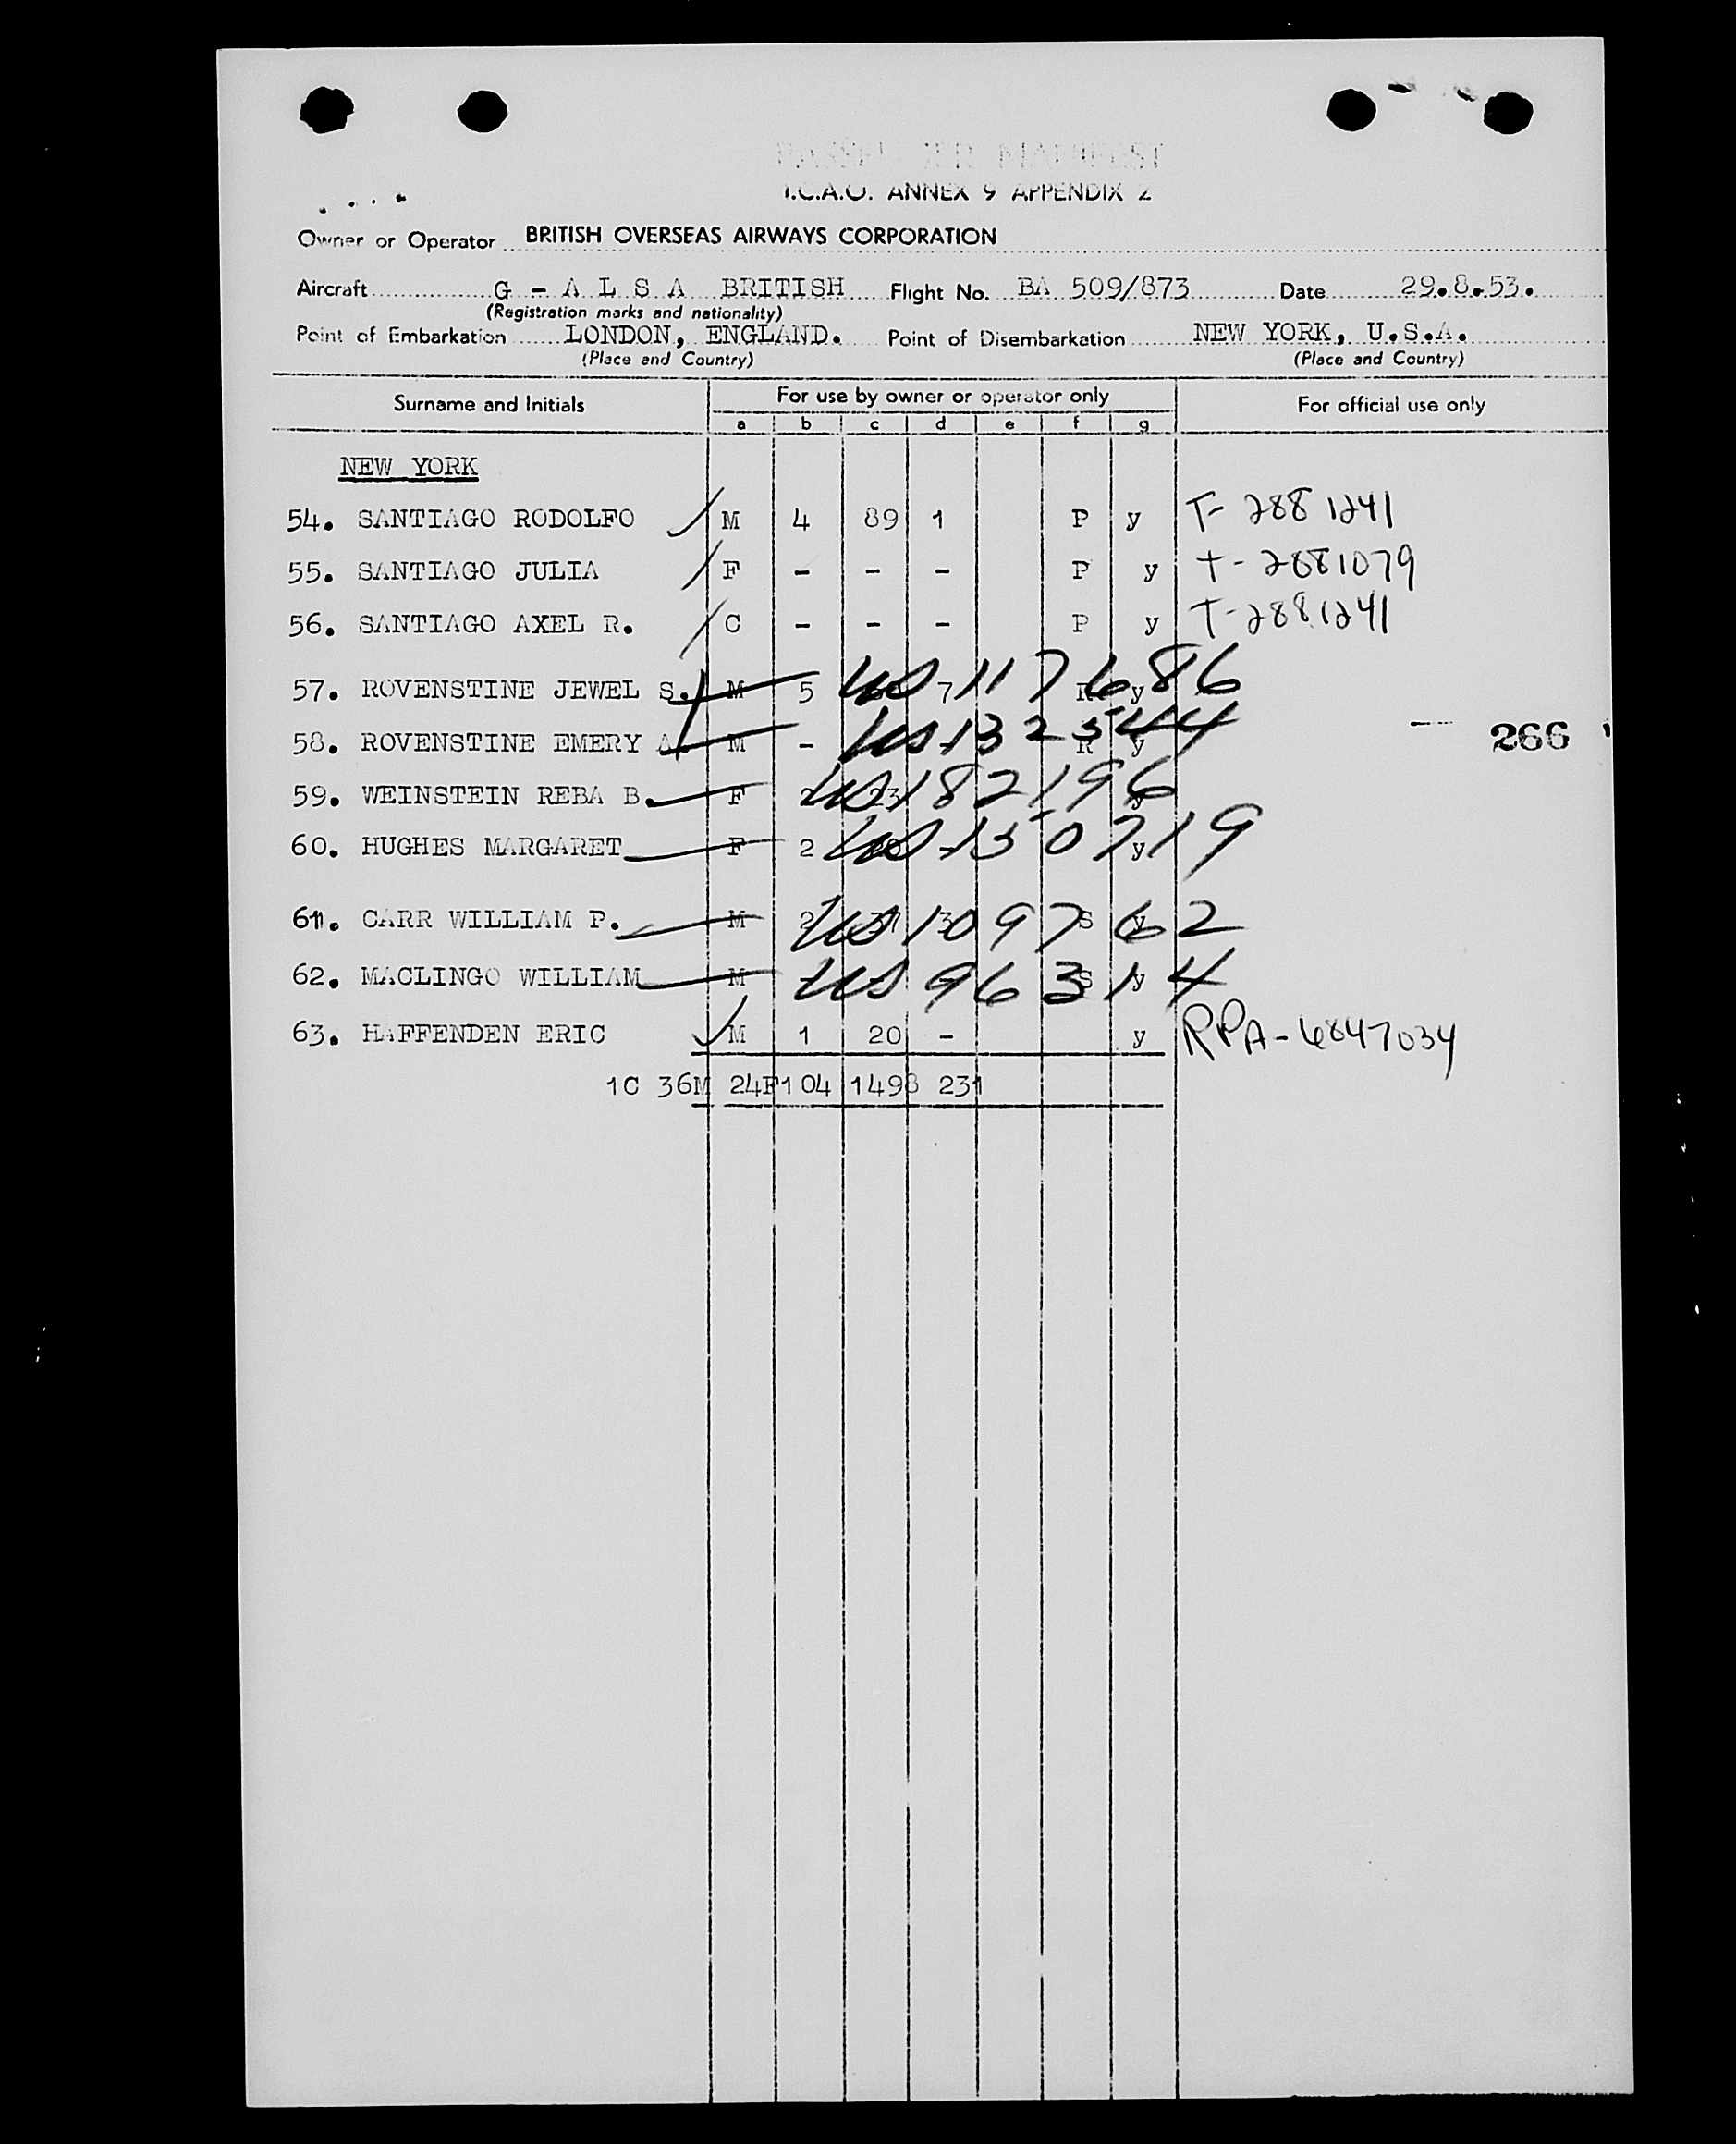 PASSENGER MANIFEST
I.C.A.O. ANNEX 9 APPENDIX 2
Owner or Operator BRITISH OVERSEAS AIRWAYS CORPORATION
Aircraft G - A L S A BRITISH Flight No. BA 509/873 Date 29.8.53.
(Registration marks and nationality)
Point of Embarkation LONDON, ENGLAND. Point of Disembarkation NEW YORK, U.S.A.
(Place and Country) (Place and Country)
Surname and Initials For use by owner or operator only For official use only
a b c d e f g
NEW YORK
54. SANTIAGO RODOLFO M 4 89 1 P y T- 2881241
55. SANTIAGO JULIA F - - - P y T- 2881079
56. SANTIAGO AXEL R. C - - - P y T-2881241
57. ROVENSTINE JEWEL S. M 5 7 R y US 1176686
58. ROVENSTINE EMERY A. M - R y US 132544
266
59. WEINSTEIN REBA B. F y US 182196
60. HUGHES MARGARET F 2 - y US 150719
61. CARR WILLIAM P. M 2 3 S y US 109762
62. MACLINGO WILLIAM M S y US 96314
63. HAFFENDEN ERIC M 1 20 - y RPA-6847034
1C 36M 24F 104 1498 231